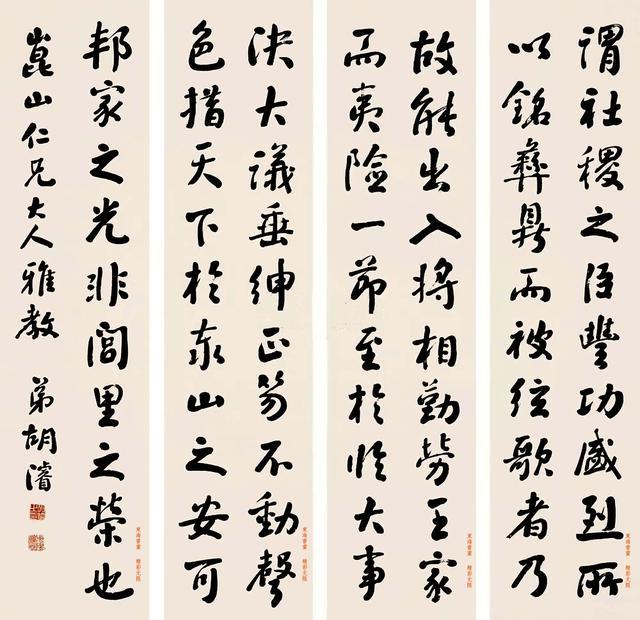 謂社稷之臣豐功盛烈所
以銘彝鼎而被弦歌者乃
故能出入將相勤勞王家
而夷險一節至於臨大事
決大議垂紳正笏不動聲
色措天下於泰山之安可
邦家之光非閭里之榮也
崑山仁兄大人雅教 弟胡濬
東海書畫
東海書畫
東海書畫
東海書畫